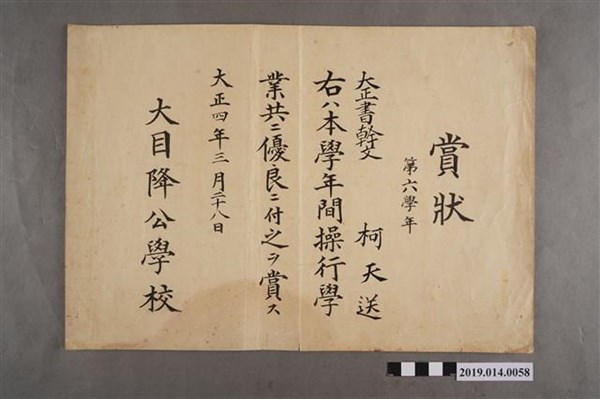 賞狀
第六學年
柯天送
大正書翰文
右ハ本學年間操行學
業共ニ優良ニ付之ヲ賞ス
大正四年三月二十八日
大目降公學校
2019.014.0058